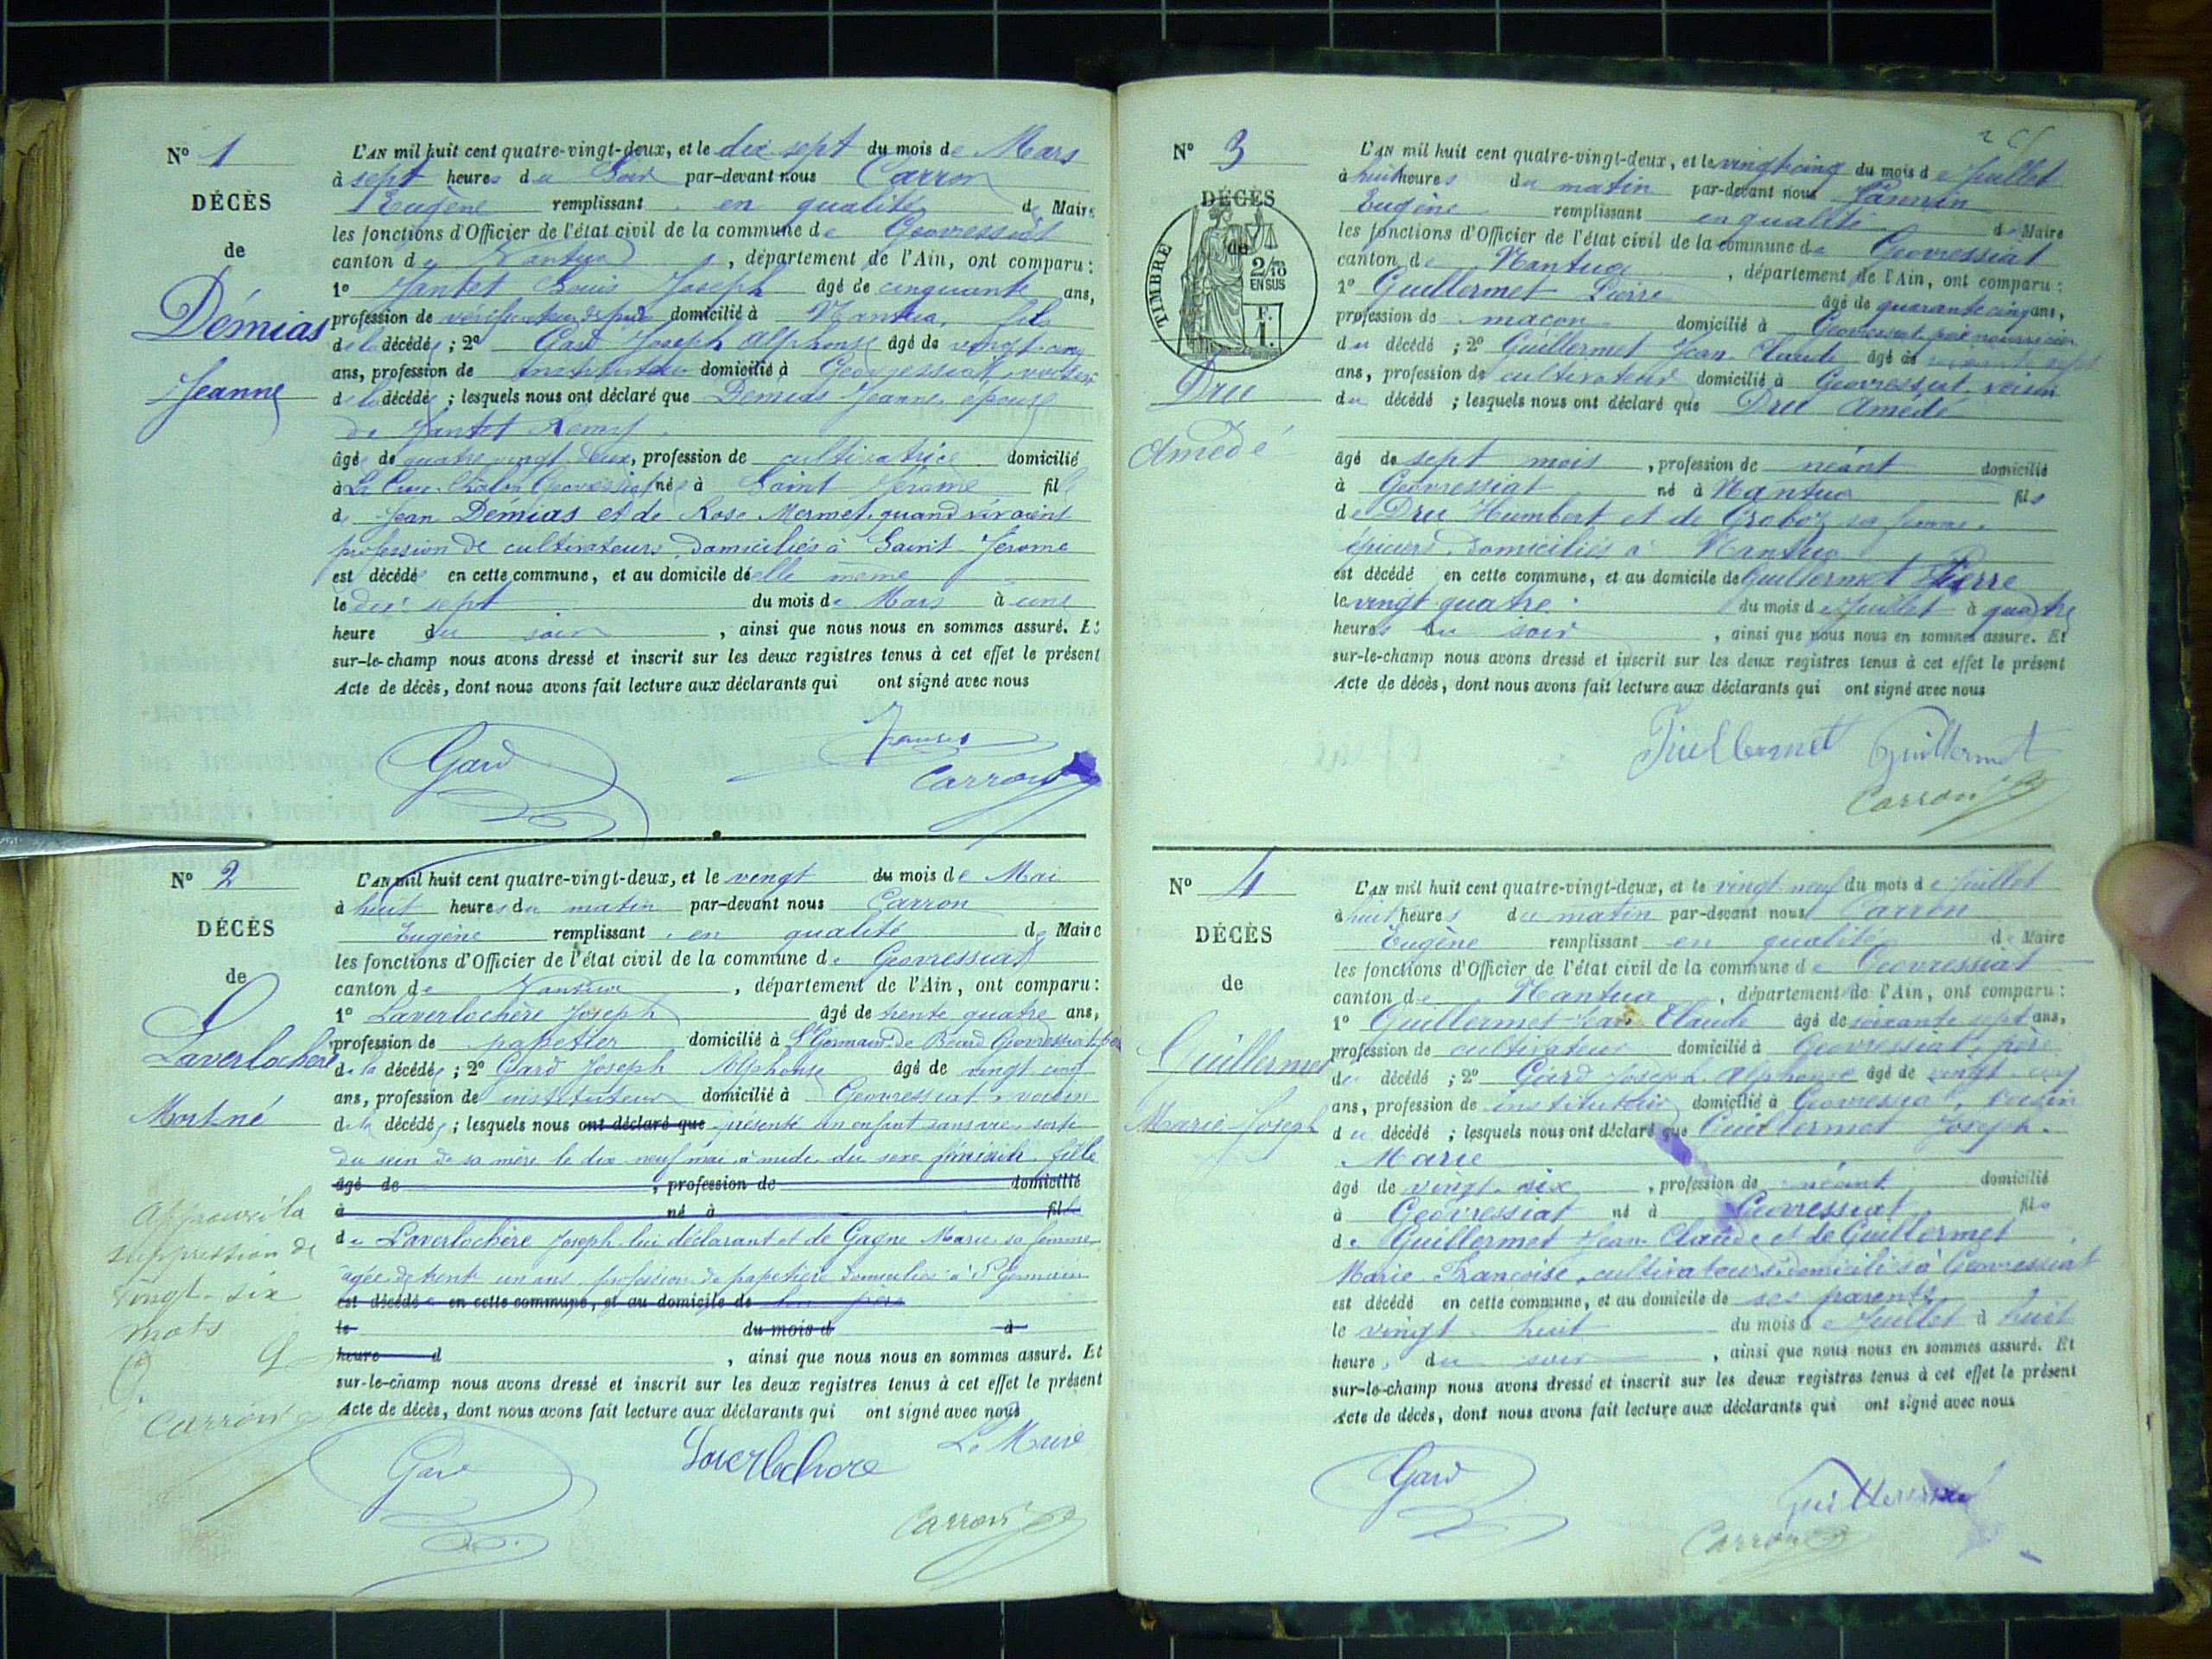 N° 1
DÉCÈS
de
Démias
Jeanne
L'AN mil huit cent quatre-vingt-deux, et le dix sept du mois de Mars
à sept heures du Soir par-devant nous Carron
Eugène remplissant en qualité de Maire
les fonctions d'Officier de l'état civil de la commune de Geovressiat
canton de Nantua, département de l'Ain, ont comparu :
1° Jantet Louis Joseph âgé de cinquante ans,
profession de domicilié à Nantua, fils
de la décédée ; 2° Gard Joseph Alphonse âgé de vingt cinq
ans, profession de instituteur domicilié à Geovressiat, voisin
de la décédée ; lesquels nous ont déclaré que Démias Jeanne, épouse
de Jantet Remy
âgée de quatre vingt deux, profession de cultivatrice domicilié
à Geovressiat née à Saint Jérome fille
de Jean Démias et de Rose Mermet, quand vivaient
profession de cultivateurs, domiciliés à Saint Jérome
est décédée en cette commune, et au domicile d'elle même
le dix sept du mois de Mars à une
heure du soir, ainsi que nous nous en sommes assuré. Et
sur-le-champ nous avons dressé et inscrit sur les deux registres tenus à cet effet le présent
Acte de décès, dont nous avons fait lecture aux déclarants qui ont signé avec nous
Gard
Carron
N° 2
DÉCÈS
de
Laverlochère
Mort-né
L'AN mil huit cent quatre-vingt-deux, et le vingt du mois de Mai
à huit heures du matin par-devant nous Carron
Eugène remplissant en qualité de Maire
les fonctions d'Officier de l'état civil de la commune de Geovressiat
canton de Nantua, département de l'Ain, ont comparu :
1° Laverlochère Joseph âgé de trente quatre ans,
profession de papetier domicilié à St Germain de Béard Geovressiat père
de la décédée ; 2° Gard Joseph Alphonse âgé de vingt cinq
ans, profession de instituteur domicilié à Geovressiat, voisin
de la décédée ; lesquels nous ont déclaré que présenté un enfant sans vie, sorti
du sein de sa mère le dix neuf mai à midi du sexe féminin, fille
âgé de , profession de domicilié
à né à fil
de Laverlochère Joseph lui déclarant et de Gagne Marie sa femme
âgée de trente un ans profession de papetière domiciliée à St Germain
est décédé en cette commune, et au domicile de son père
le du mois d à
heure d , ainsi que nous nous en sommes assuré. Et
sur-le-champ nous avons dressé et inscrit sur les deux registres tenus à cet effet le présent
Acte de décès, dont nous avons fait lecture aux déclarants qui ont signé avec nous
Approuvé la
suppression de
vingt-six
mots
G. G
Carron
Gard
Laverlochere
Le Maire
Carron
N° 3
DÉCÈS
de
TIMBRE
2/10
EN SUS
F.
1.
Dru
Amédé
L'AN mil huit cent quatre-vingt-deux, et le vingt cinq du mois de Juillet
à huit heures du matin par-devant nous
Eugène remplissant en qualité de Maire
les fonctions d'Officier de l'état civil de la commune de Geovressiat
canton de Nantua, département de l'Ain, ont comparu :
1° Guillermet Pierre âgé de quarante cinq ans,
profession de maçon domicilié à Geovressiat père nourricier
du décédé ; 2° Guillermet Jean Claude âgé de soixante sept
ans, profession de cultivateur domicilié à Geovressiat, voisin
du décédé ; lesquels nous ont déclaré que Dru Amédé
âgé de sept mois, profession de néant domicilié
à Geovressiat né à Nantua fils
de Dru Humbert et de Groboz sa femme,
épiciers, domiciliés à Nantua
est décédé en cette commune, et au domicile de Guillermet Pierre
le vingt quatre du mois de Juillet à quatre
heures du soir, ainsi que nous nous en sommes assuré. Et
sur-le-champ nous avons dressé et inscrit sur les deux registres tenus à cet effet le présent
Acte de décès, dont nous avons fait lecture aux déclarants qui ont signé avec nous
Guillermet Guillermet
Carron
N° 4
DÉCÈS
de
Guillermet
Marie Joseph
L'AN mil huit cent quatre-vingt-deux, et le vingt neuf du mois de Juillet
à huit heures du matin par-devant nous Carron
Eugène remplissant en qualité de Maire
les fonctions d'Officier de l'état civil de la commune de Geovressiat
canton de Nantua, département de l'Ain, ont comparu :
1° Guillermet Jean Claude âgé de soixante sept ans,
profession de cultivateur domicilié à Geovressiat, père
du décédé ; 2° Gard Joseph Alphonse âgé de vingt cinq
ans, profession de instituteur domicilié à Geovressiat, voisin
du décédé ; lesquels nous ont déclaré que Guillermet Joseph
Marie
âgé de vingt six, profession de néant domicilié
à Geovressiat né à Geovressiat fils
de Guillermet Jean Claude et de Guillermet
Marie Françoise, cultivateurs domiciliés à Geovressiat
est décédé en cette commune, et au domicile de ses parents
le vingt huit du mois de Juillet à huit
heures du soir, ainsi que nous nous en sommes assuré. Et
sur-le-champ nous avons dressé et inscrit sur les deux registres tenus à cet effet le présent
Acte de décès, dont nous avons fait lecture aux déclarants qui ont signé avec nous
Gard
Guillermet
Carron